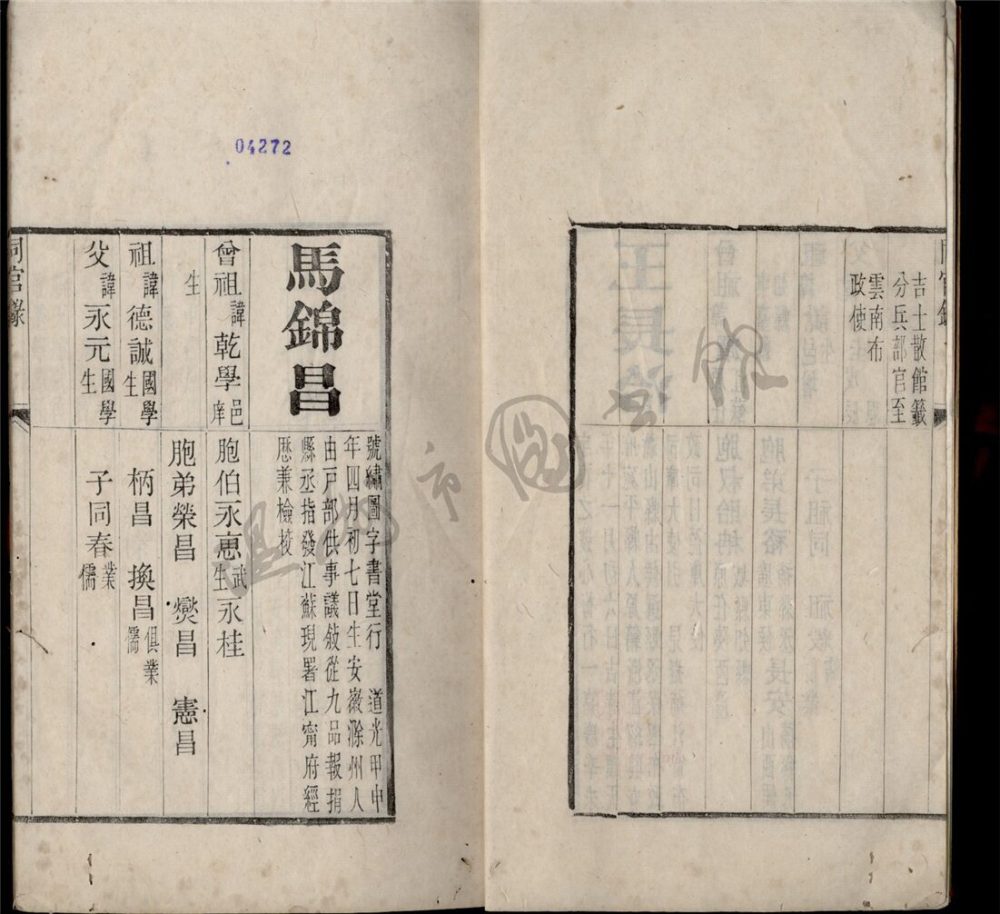 同官錄
吉士散館籤
分兵部官至
雲南布
政使
04272
馬錦昌
號繡圖字書堂行 道光甲申
年四月初七日生安徽滁州人
由戶部供事議敘從九品報捐
縣丞指發江蘇現署江甯府經
歷兼檢校
曾祖諱乾學邑庠
生
祖諱德誠國學生
父諱永元國學生
胞伯永惠武生永桂
胞弟榮昌 燮昌 憲昌
柄昌 換昌俱業儒
子同春業儒
同官錄